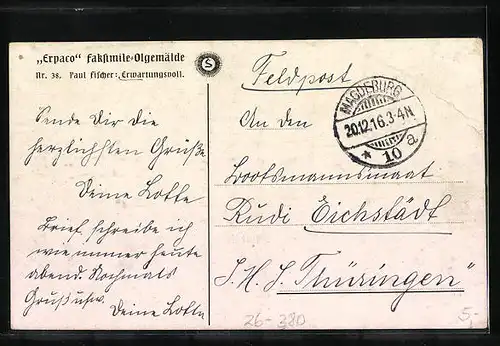 „Erpaco“ Faksimile-Ölgemälde
Nr. 38. Paul Fischer: Erwartungsvoll.
S
Feldpost
MAGDEBURG
20.12.16.3-4N
* 10 a
An den
Bootsmannsmaat
Rudi Eichstädt
S. M. S. „Thüringen“
Sende Dir die
herzlichsten Grüße
Deine Lotte
Brief schreibe ich
wie immer heute
abend. Nochmals
Gruß usw.
Deine Lotte
26-380
5,-